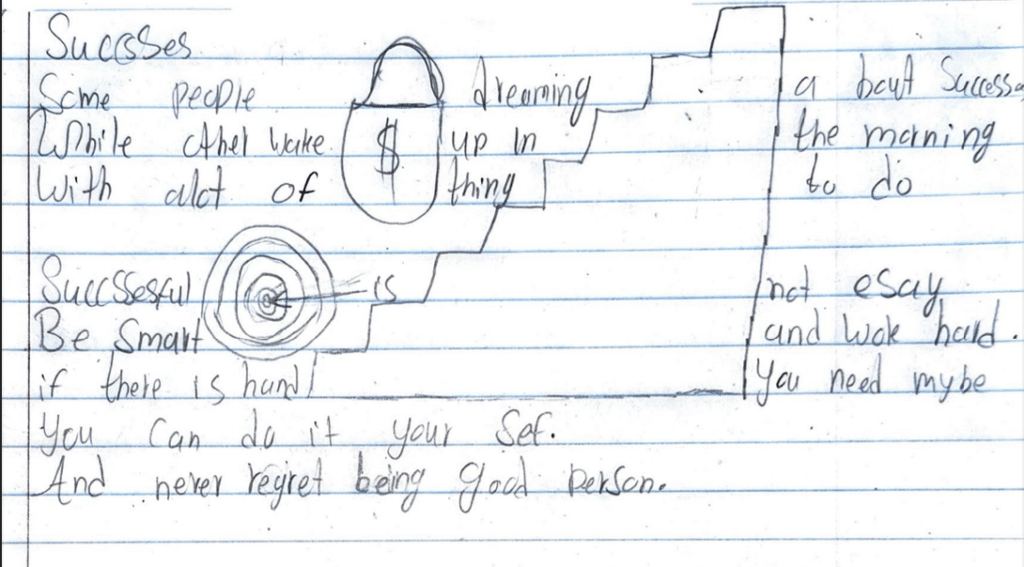 Succsses
Some people dreaming a bout Success
While other wake up in the morning
With alot of $ thing to do
Succssesful is not esay
Be Smart and wok hard.
if there is hand You need mybe
You can do it your Sef.
And never regret being good person.